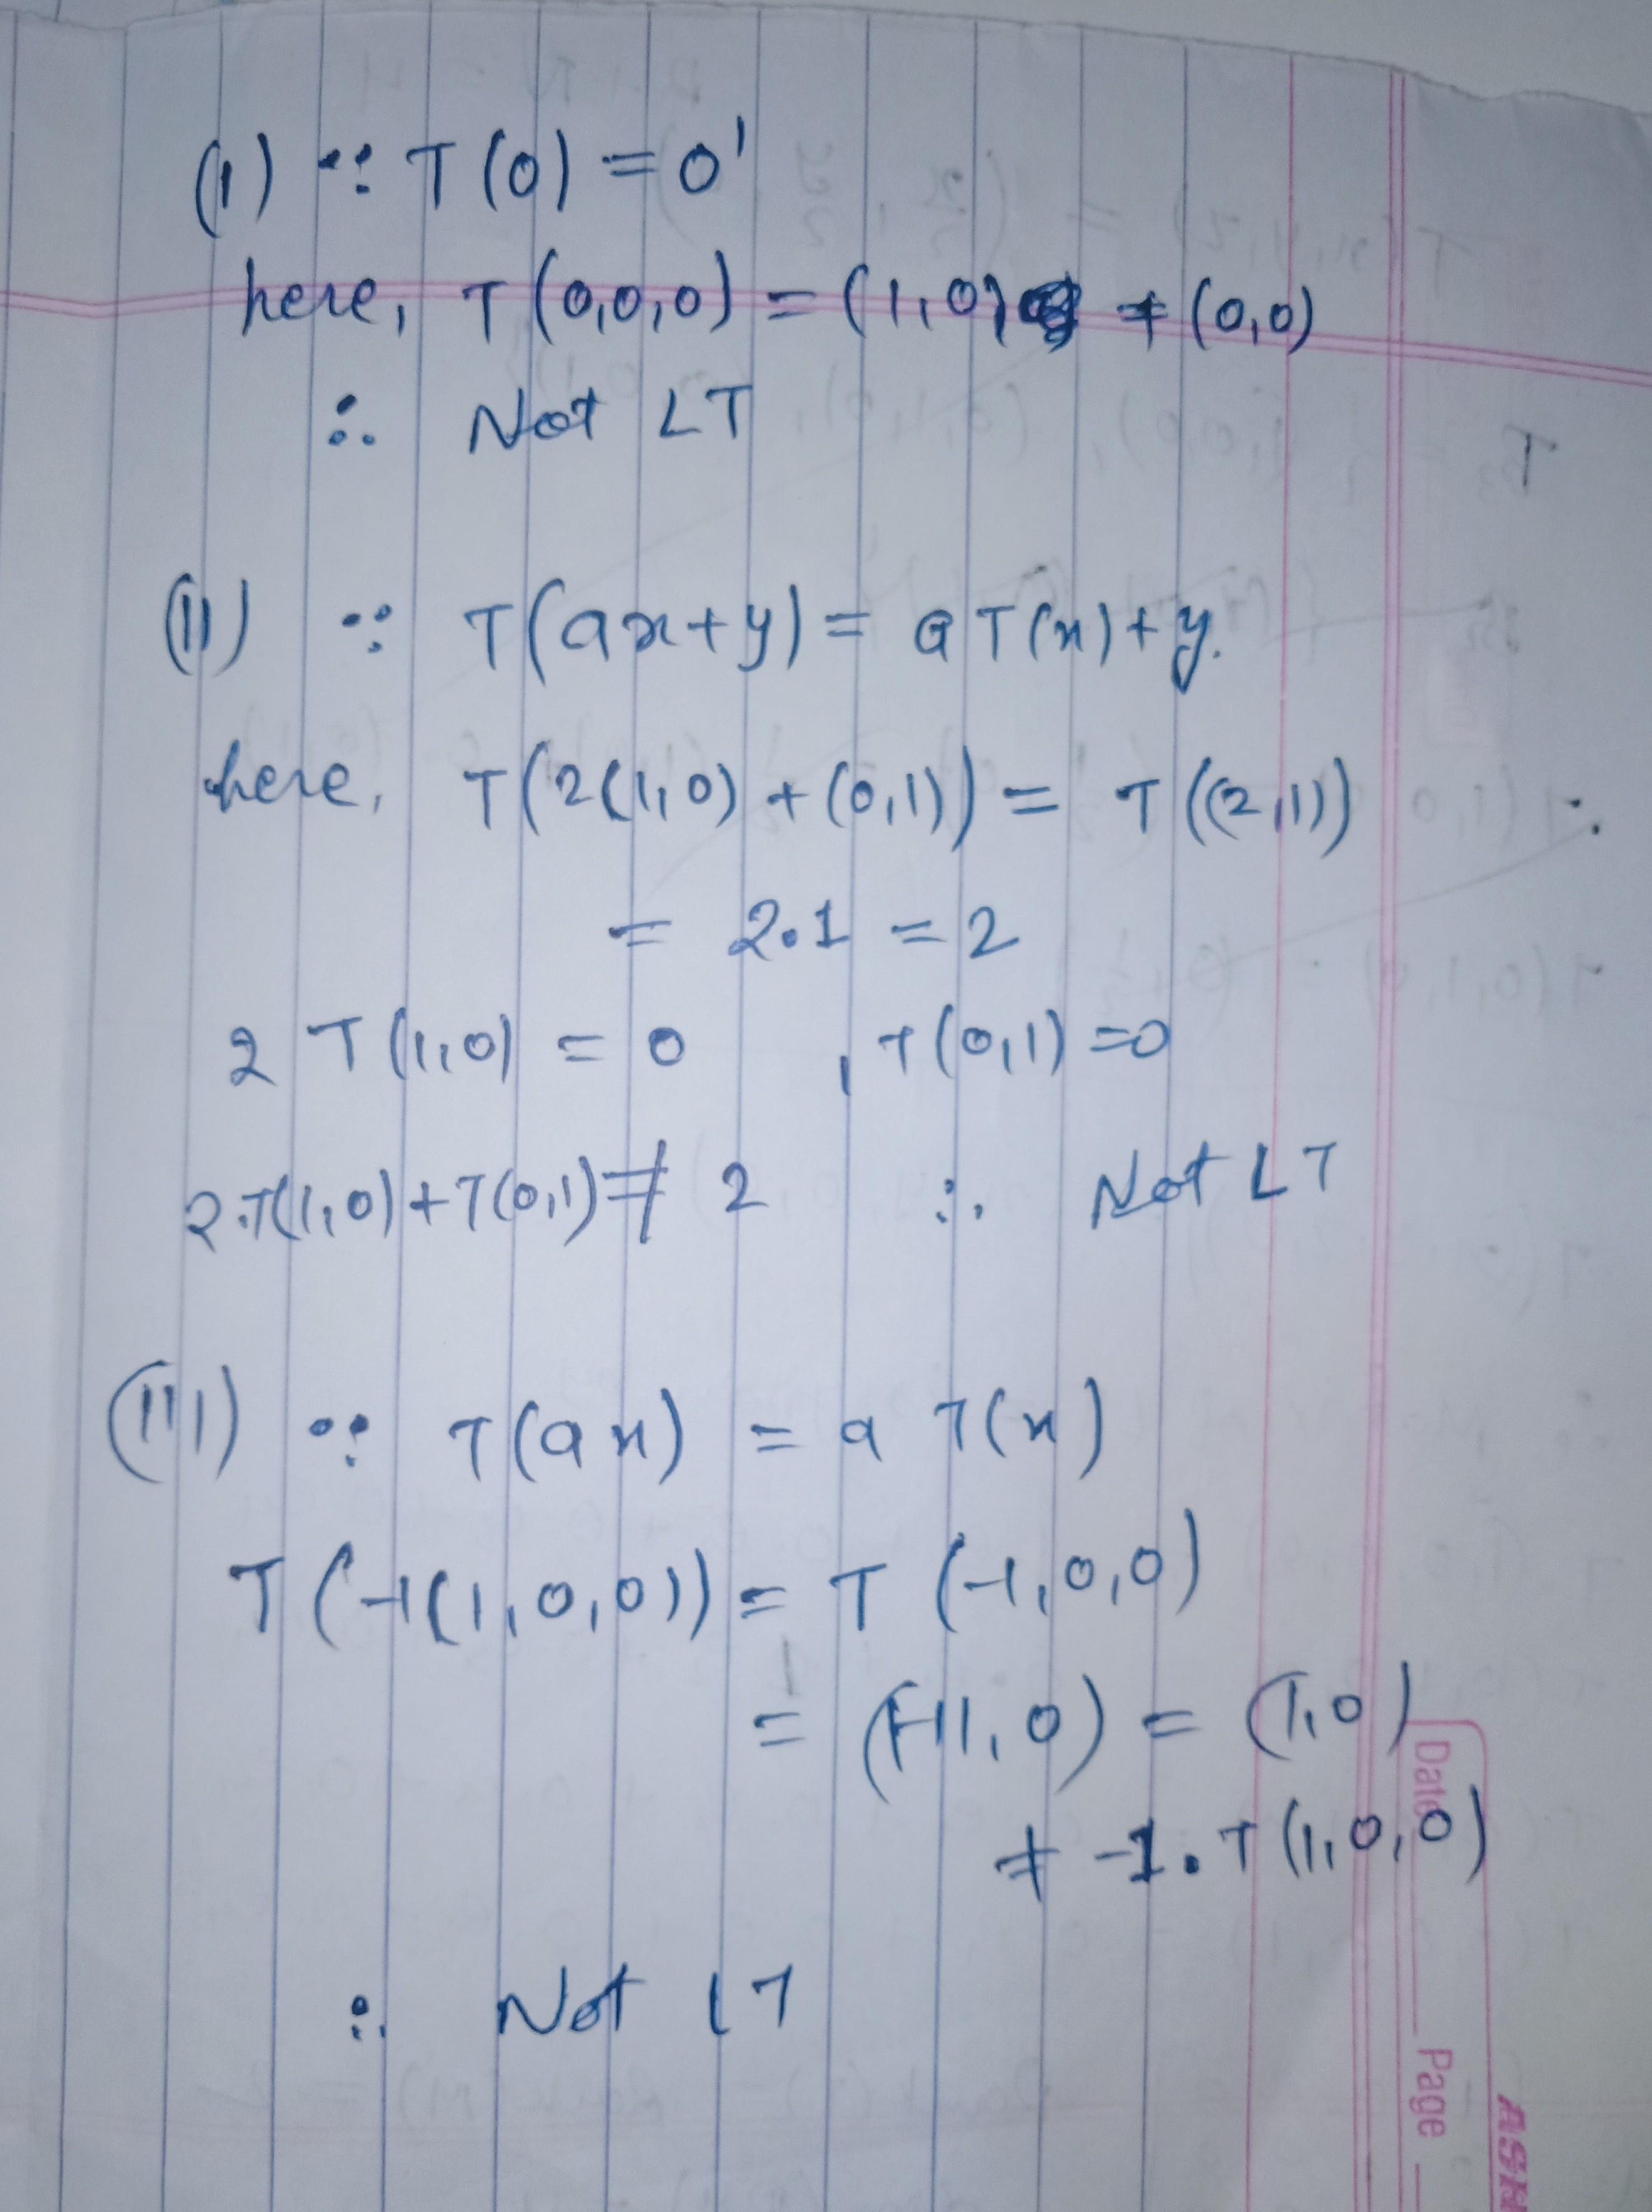 (I) ∵ T(0) = 0'
here, T(0,0,0) = (1,0) ≠ (0,0)
∴ Not LT
T
(II) ∵ T(ax+y) = aT(x)+y.
here, T(2(1,0) + (0,1)) = T((2,1))
= 2.1 = 2
2 T(1,0) = 0 , T(0,1) =0
2.T(1,0)+T(0,1) ≠ 2 ∴ Not LT
(III) ∵ T(ax) = a T(x)
T(-1(1,0,0)) = T(-1,0,0)
= (|-1|,0) = (1,0)
≠ -1.T(1,0,0)
∴ Not LT
Date
Page